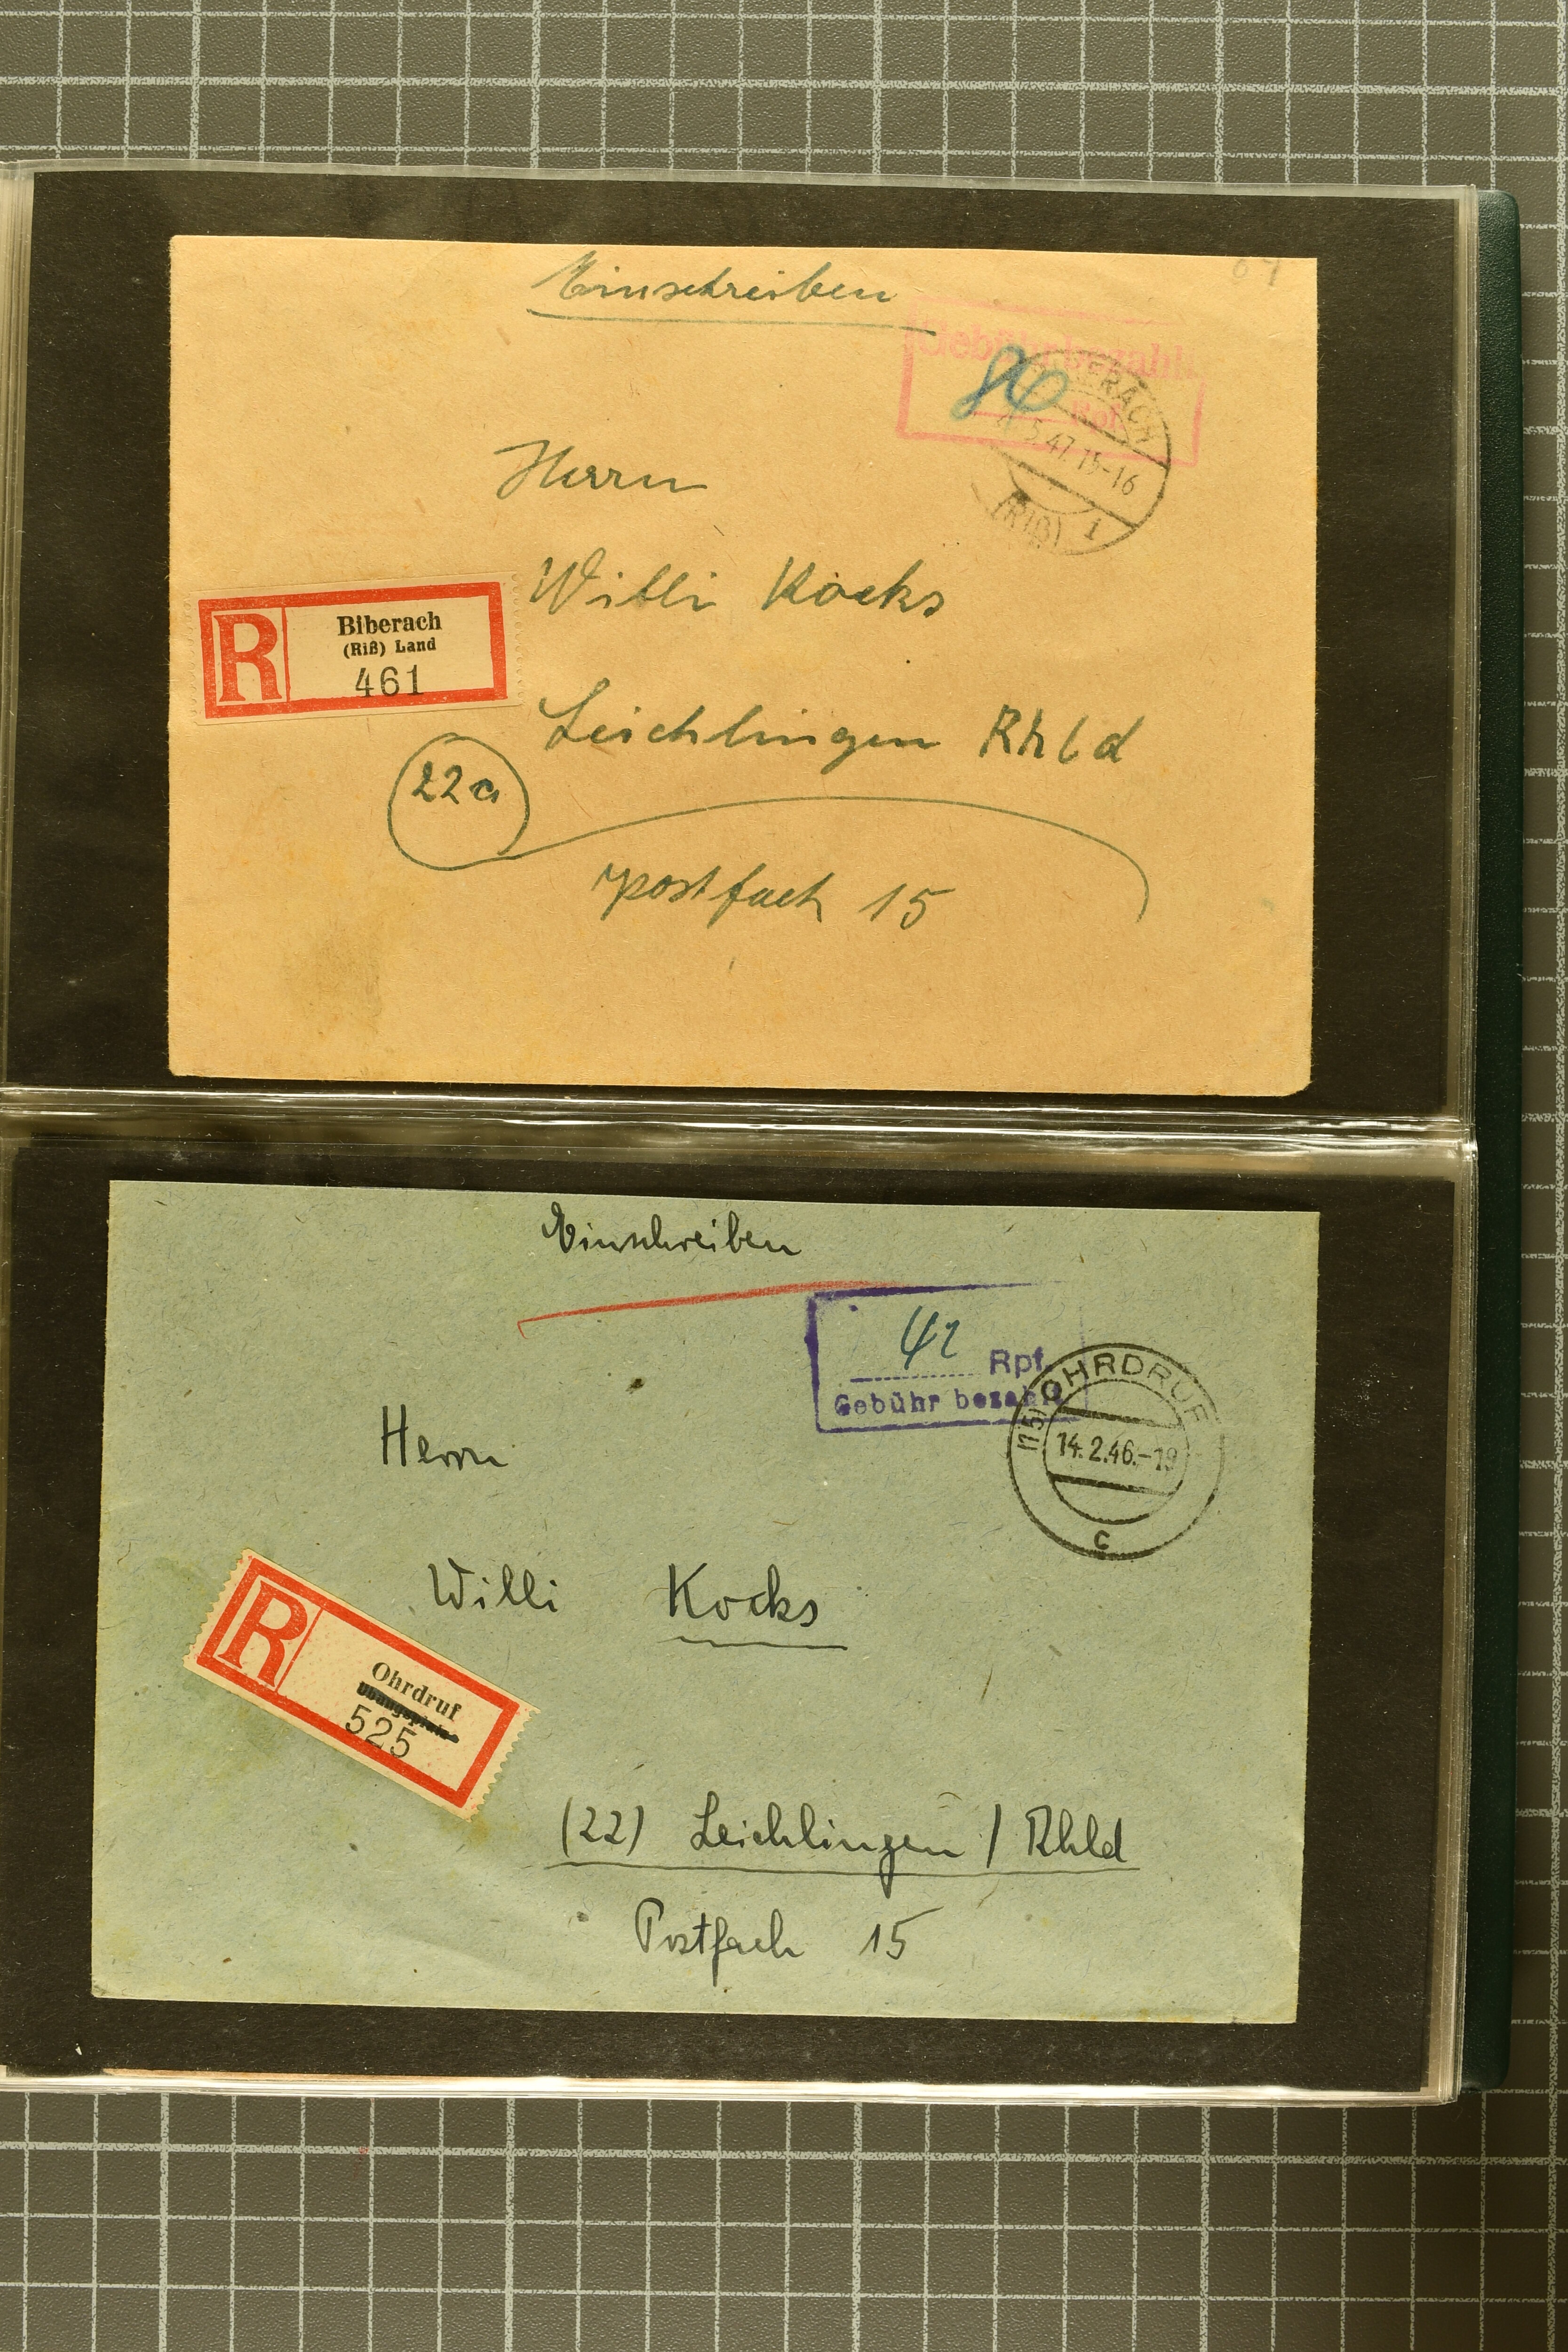 Einschreiben
Gebühr bezahlt
Rpf.
BIBERACH
5.47.15-16
(RIß) 1
Herrn
Willi Kocks
R
Biberach
(Riß) Land
461
Leichlingen Rhld
22a
Postfach 15
Einschreiben
42 Rpf.
Gebühr bezahlt
(15) OHRDRUF
14.2.46.-19
c
Herrn
Willi Kocks
R
Ohrdruf
525
(22) Leichlingen / Rhld
Postfach 15